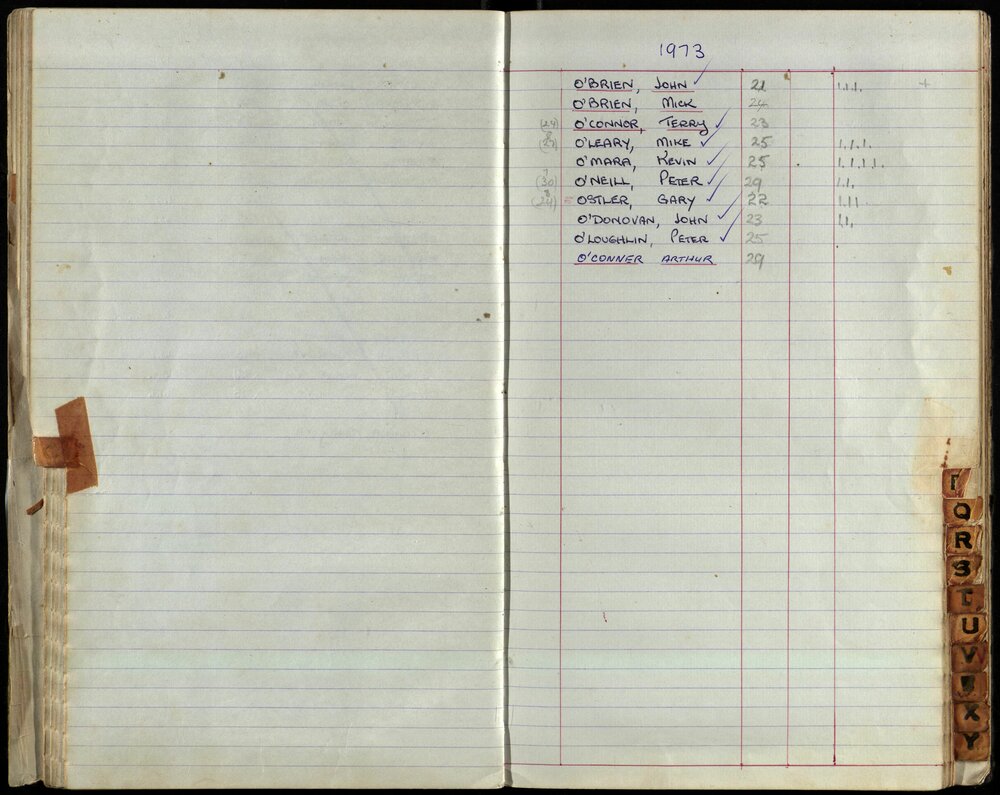 1973
O'BRIEN, JOHN ✓ 21 1.1.1. +
O'BRIEN, MICK 24
(24) O'CONNOR, TERRY ✓ 23
O'LEARY, MIKE ✓ 25 1.1.1.
O'MARA, KEVIN ✓ 25 1.1.1.1.
(30) O'NEILL, PETER ✓ 29 1.1.
(24) = OSTLER, GARY ✓ 22 1.11
O'DONOVAN, JOHN ✓ 23 1.1.
O'LOUGHLIN, PETER ✓ 25
O'CONNER ARTHUR 29
Q
R
S
T
U
V
X
Y